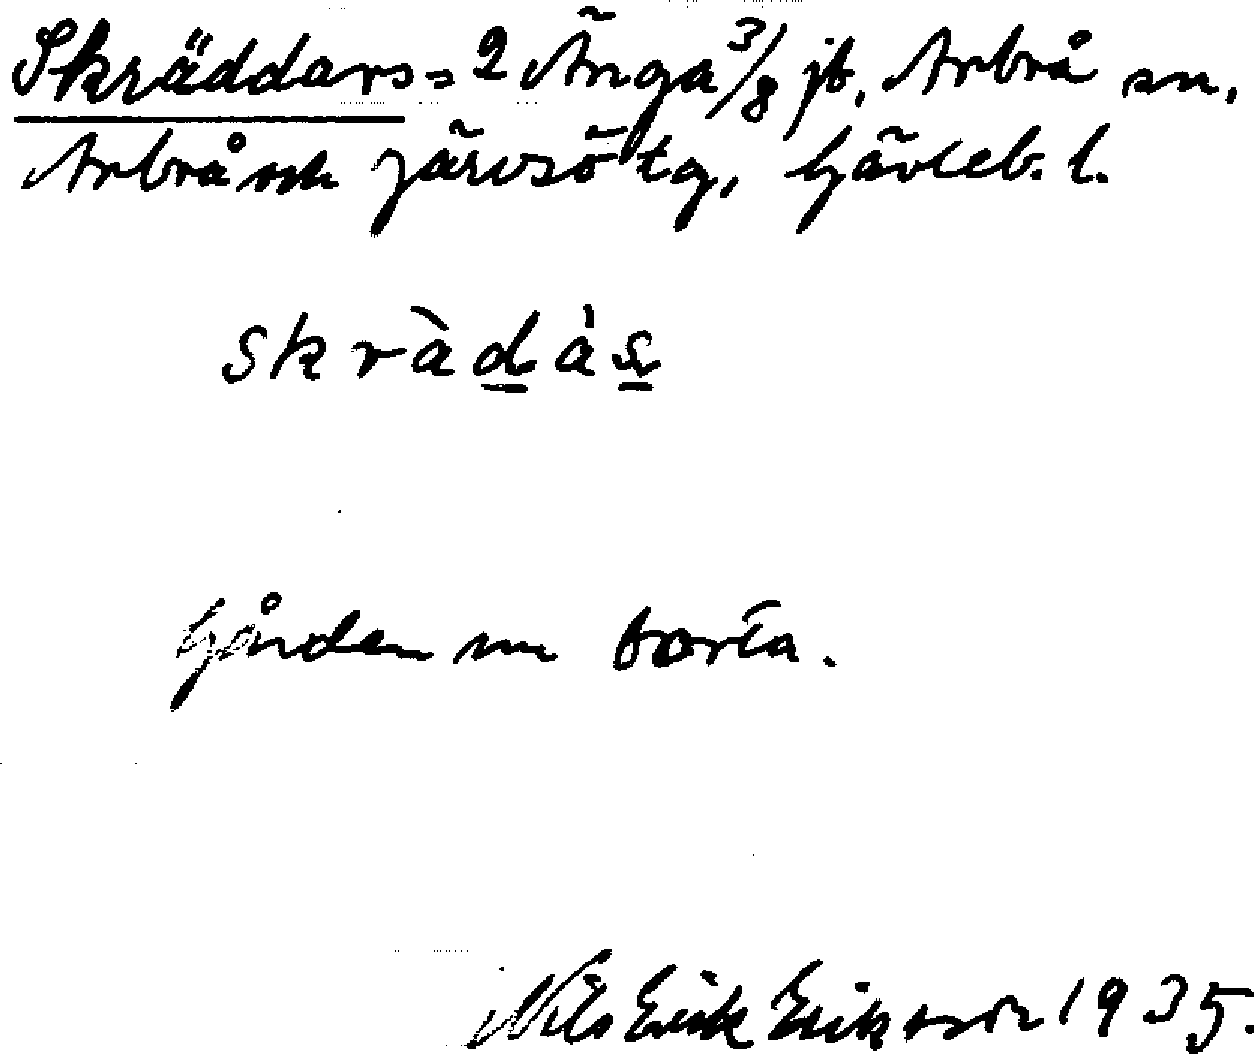 Skräddars = 2 Änga 3/8 jb, Arbrå sn,
Arbrå och Järvsö tg, Gävleb. l.
skràdàs
Gården nu borta.
Nils Erik Eriksson 1935.